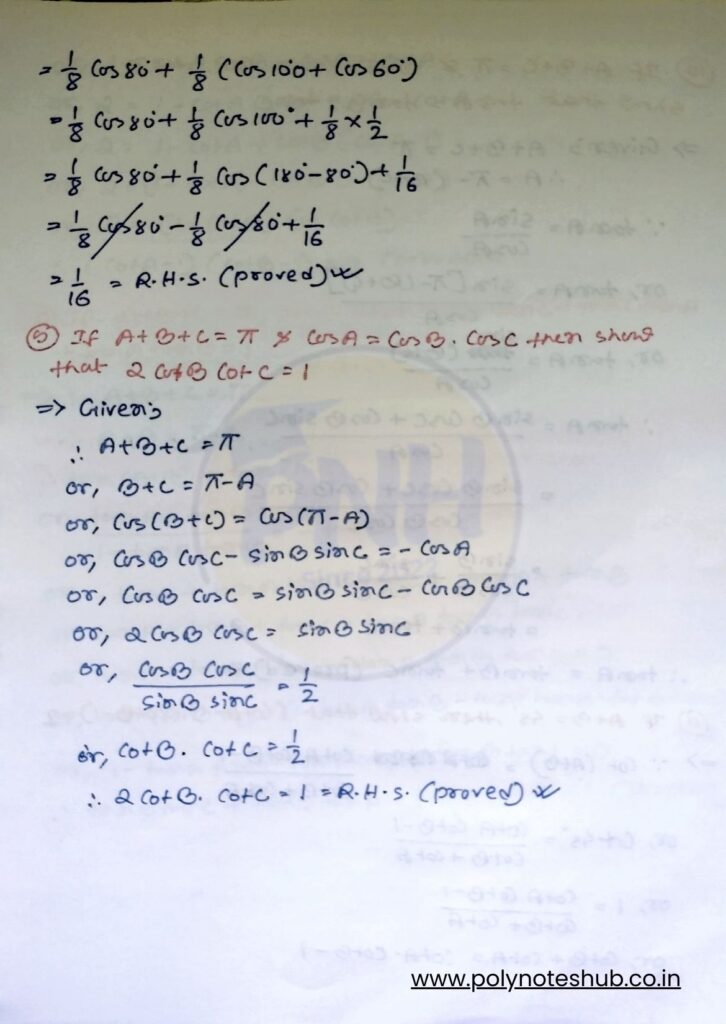 = 1/8 Cos80° + 1/8 (Cos100° + Cos60°)
= 1/8 Cos80° + 1/8 Cos100° + 1/8 × 1/2
= 1/8 Cos80° + 1/8 Cos(180° - 80°) + 1/16
= 1/8 Cos80° - 1/8 Cos80° + 1/16
= 1/16 = R.H.S. (proved)
⑤ If A+B+C = π & CosA = CosB . CosC then show
that 2 CotB Cot C = 1
=> Given:
∴ A+B+C = π
or, B+C = π-A
or, Cos(B+C) = Cos(π-A)
or, CosB CosC - sinB sinC = - CosA
or, CosB CosC = sinB sinC - CosB CosC
or, 2 CosB CosC = sinB sinC
or, CosB CosC / sinB sinC = 1/2
or, CotB . Cot C = 1/2
∴ 2 CotB . CotC = 1 = R.H.S. (proved)
PNH
www.polynoteshub.co.in